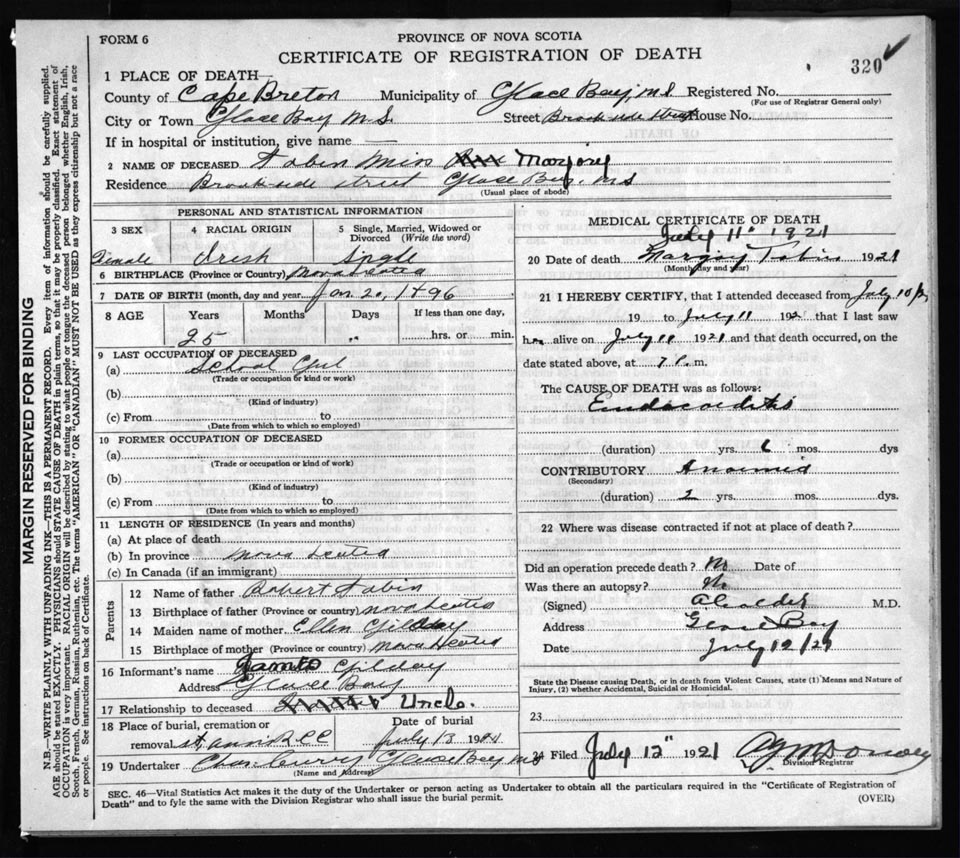 FORM 6
PROVINCE OF NOVA SCOTIA
CERTIFICATE OF REGISTRATION OF DEATH
320
1 PLACE OF DEATH—
County of Cape Breton Municipality of Glace Bay, N.S. Registered No.
(For use of Registrar General only)
City or Town Glace Bay N.S. Street Brookside Street House No.
If in hospital or institution, give name
2 NAME OF DECEASED Tobin Miss Marjory
Residence Brookside Street Glace Bay, N.S.
(Usual place of abode)
PERSONAL AND STATISTICAL INFORMATION
3 SEX 4 RACIAL ORIGIN 5 Single, Married, Widowed or Divorced (Write the word)
Female Irish Single
6 BIRTHPLACE (Province or Country) Nova Scotia
7 DATE OF BIRTH (month, day and year) Jan 20, 1896
8 AGE Years Months Days If less than one day,
25 " hrs. or min.
9 LAST OCCUPATION OF DECEASED
(a) School Girl
(Trade or occupation or kind or work)
(b)
(Kind of industry)
(c) From to
(Date from which to which so employed)
10 FORMER OCCUPATION OF DECEASED
(a)
(Trade or occupation or kind of work)
(b)
(Kind of industry)
(c) From to
(Date from which to which so employed)
11 LENGTH OF RESIDENCE (In years and months)
(a) At place of death
(b) In province Nova Scotia
(c) In Canada (if an immigrant)
Parents
12 Name of father Robert Tobin
13 Birthplace of father (Province or country) Nova Scotia
14 Maiden name of mother Ellen Gilday
15 Birthplace of mother (Province or country) Nova Scotia
16 Informant's name James Gilday
Address Glace Bay
17 Relationship to deceased Uncle.
18 Place of burial, cremation or removal St. Anns R C C
Date of burial
July 13 1921
19 Undertaker Chas Curry Glace Bay NS
(Name and Address)
MEDICAL CERTIFICATE OF DEATH
July 11" 1921
20 Date of death Margory Tobin 1921
(Month day and year)
21 I HEREBY CERTIFY, that I attended deceased from July 10
19 to July 11 1921 that I last saw
her alive on July 11 1921 and that death occurred, on the
date stated above, at 7 P. m.
The CAUSE OF DEATH was as follows:
Endocarditis
(duration) yrs. 6 mos. dys
CONTRIBUTORY Anaemia
(Secondary)
(duration) 2 yrs. mos. dys.
22 Where was disease contracted if not at place of death?
Did an operation precede death? No Date of
Was there an autopsy? No
(Signed) M.D.
Address Glace Bay
Date July 12/21
State the Disease causing Death, or in death from Violent Causes, state (1) Means and Nature of
Injury, (2) whether Accidental, Suicidal or Homicidal.
23
24 Filed July 12" 1921
Division Registrar
SEC. 46—Vital Statistics Act makes it the duty of the Undertaker or person acting as Undertaker to obtain all the particulars required in the "Certificate of Registration of
Death" and to fyle the same with the Division Registrar who shall issue the burial permit.
(OVER)
MARGIN RESERVED FOR BINDING
N.B.—WRITE PLAINLY WITH UNFADING INK—THIS IS A PERMANENT RECORD. Every item of information should be carefully supplied.
AGE should be stated EXACTLY. PHYSICIANS should STATE CAUSE OF DEATH in plain terms, so that it may be properly classified. Exact statement of
OCCUPATION is very important. RACIAL ORIGIN will be described by stating to what people or tongue the deceased person belonged whether English, Irish,
Scotch, French, German, Russian, Ruthenian, etc. The terms "AMERICAN" or "CANADIAN" MUST NOT BE USED as they express citizenship but not a race
or people. See instructions on back of Certificate.